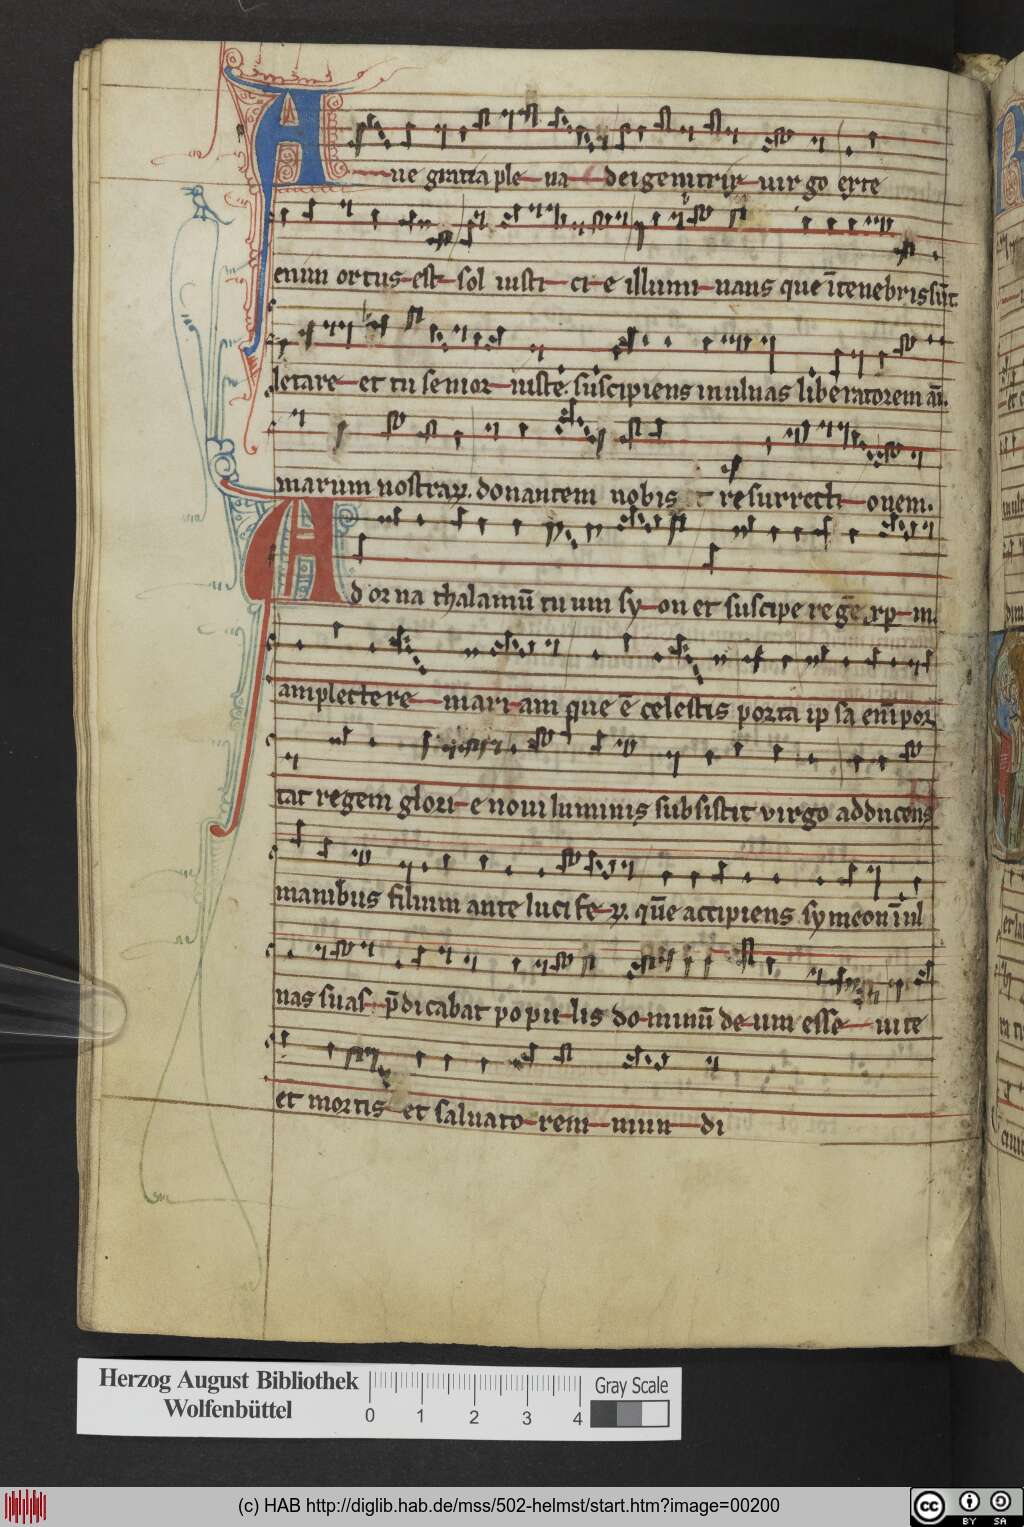 Aue gratia ple na dei genitrix uir go exte
enim ortus est sol iusti ci e illumi nans que ītenebris sūt
letare et tu senior iuste suscipiens inulnas liberatorem aīa
marum nostraꝝ. donantem nobis et resurrecti onem.
Adorna thalamū tuum sy on et suscipe regē xp̄m
amplectere mari am que ē celestis porta ipsa eni̅ por
tat regem glori e noui luminis subsistit virgo adducens
manibus filium ante lucife ꝝ. que̅ accipiens symeon īul
nas suas p̄dicabat populis dominū deum esse uite
et mortis et saluatorem mundi
Herzog August Bibliothek
Wolfenbüttel
0 1 2 3 4
Gray Scale
(c) HAB http://diglib.hab.de/mss/502-helmst/start.htm?image=00200
cc BY SA